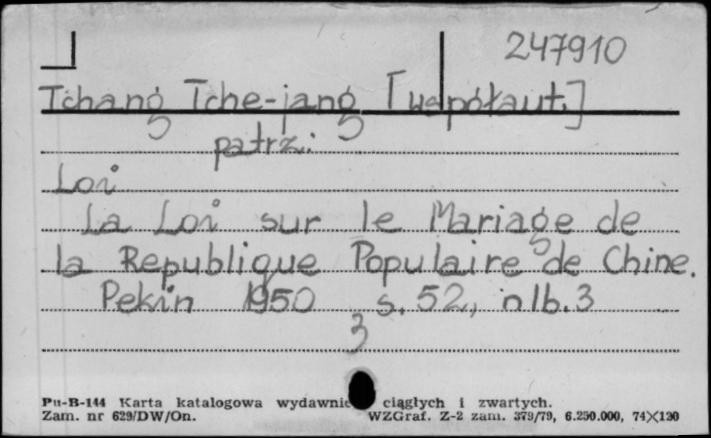 247910
Tchang Tche-jang [współaut.]
patrz:
Loi
La Loi sur le Mariage de
la Republique Populaire de Chine.
Pekin 1950 s. 52, nlb. 3
3
Pu-B-144 Karta katalogowa wydawnic ciągłych i zwartych.
Zam. nr 629/DW/On. WZGraf. Z-2 zam. 379/79, 6.250.000, 74X120